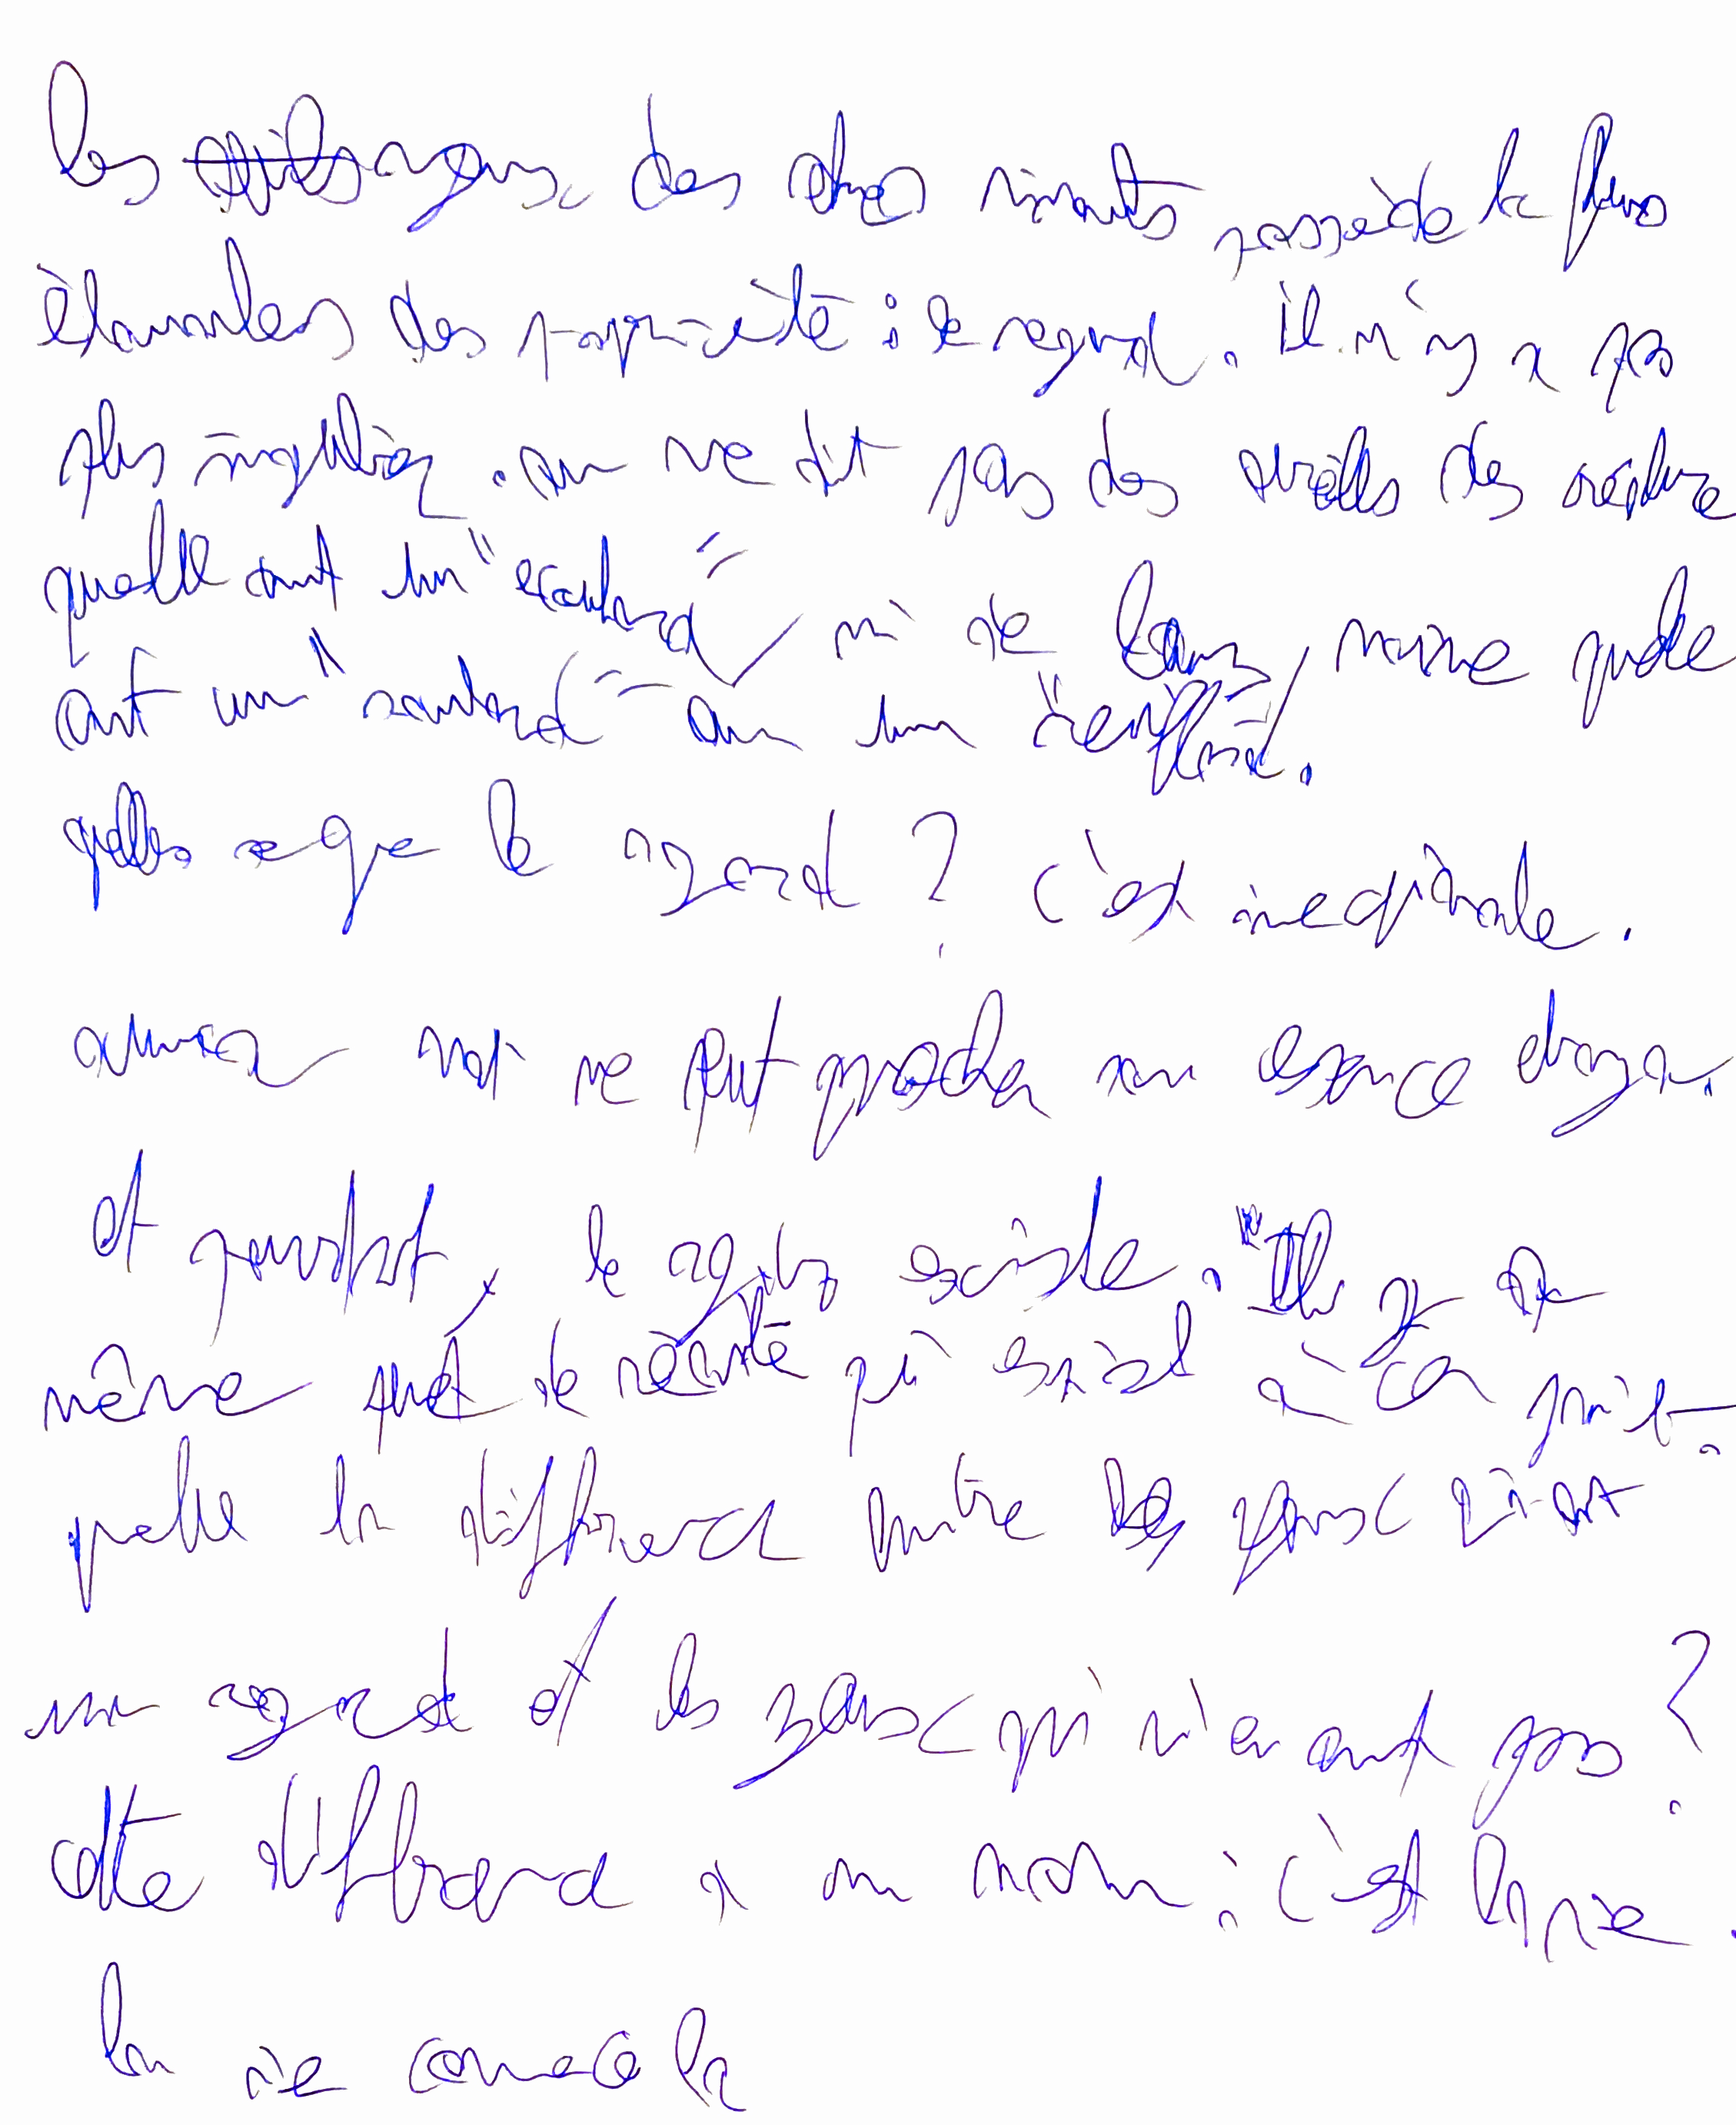 les yeux des êtres vivants possède la plus
étonnantes des propriété : le regard. il n'y a pas
plus singulier. on ne dit pas des oreilles des créature
quelle ont un "écoutard", ni de leurs narine quelle
ont un "sentard" ou un "reniflard".
qu'est ce que le regard ? c'est inexprimable.
aucun mot ne peut approcher son essence étrange.
et pourtant, le regard existe. Il y a
même peut de réalité qui existe à ce point.
quelle la différence entre les yeux qui ont
un regard et les yeux qui n'en ont pas ?
cette différence a un nom : c'est la vie.
la vie commence la